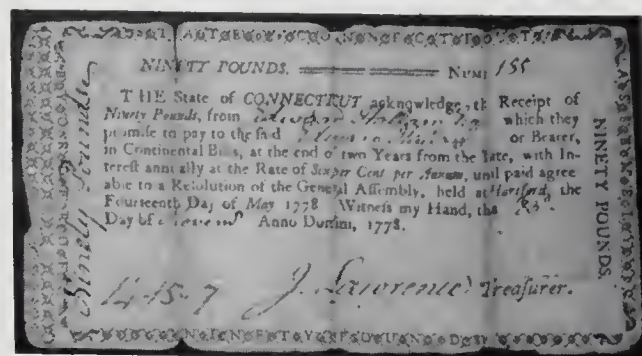 STATE OF CONNECTICUT
NINETY POUNDS. NUMB 155
THE State of CONNECTICUT acknowledge, the Receipt of
Ninety Pounds, from which they
promise to pay to the said or Bearer,
in Continental Bills, at the end of two Years from the Date, with In-
terest annually at the Rate of Six per Cent per Annum, until paid agree
able to a Resolution of the General Assembly, held at Hartford, the
Fourteenth Day of May 1778 Witness my Hand, the 23d
Day of Anno Domini, 1778.
14-15-7 J. Lawrence Treasurer.
Ninety Pounds
NINETY POUNDS.
NINETY POUNDS